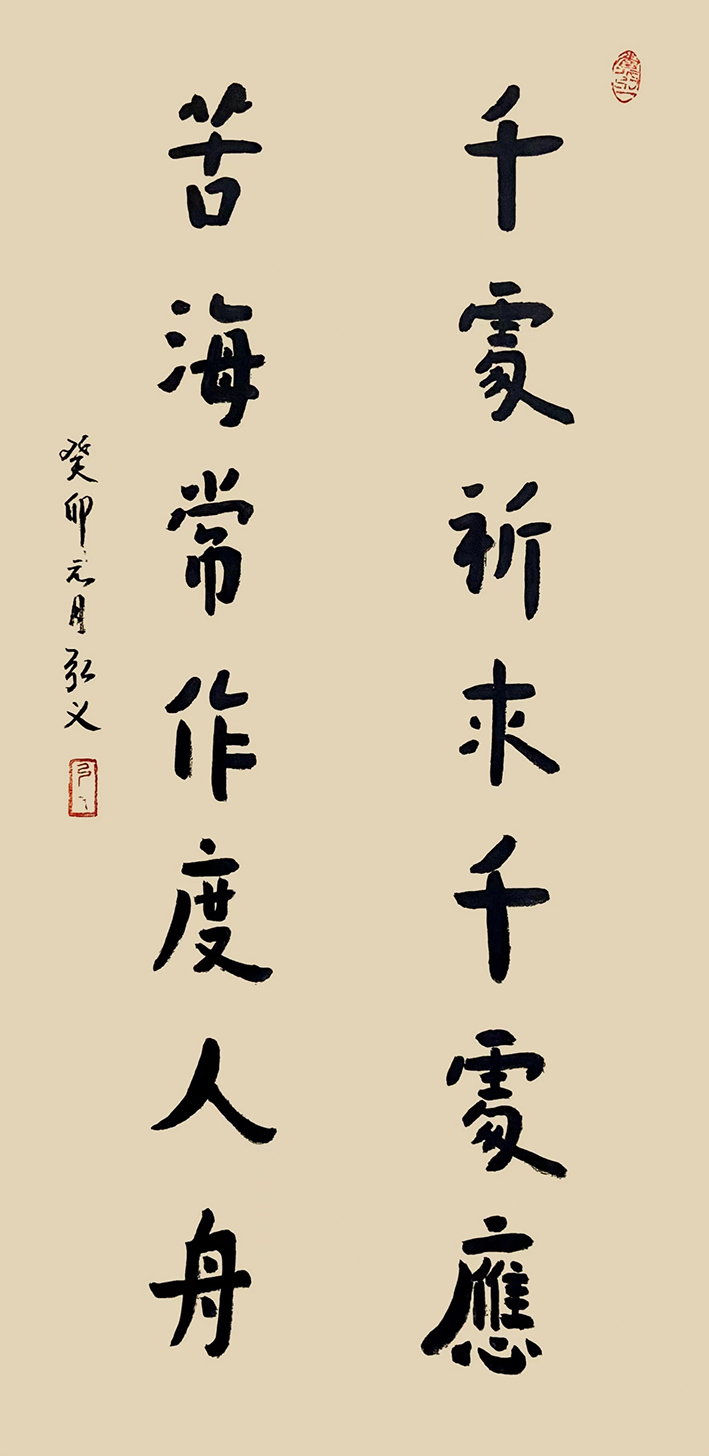 千處祈求千處應
苦海常作度人舟
癸卯元月弘义